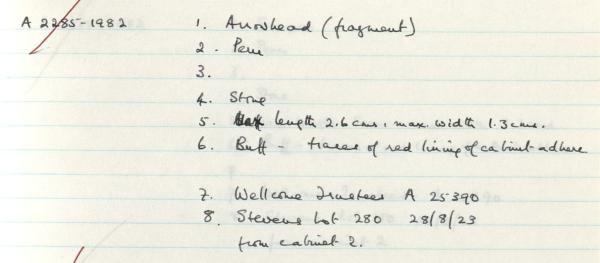 A 2285-1982 1. Arrowhead (fragment)
2. Peru
3.
4. Stone
5. length 2.6 cms, max. width 1.3 cms.
6. Buff - traces of red lining of cabinet adhere
7. Wellcome Trustees A 25390
8. Stevens Lot 280 28/8/23
from cabinet 2.